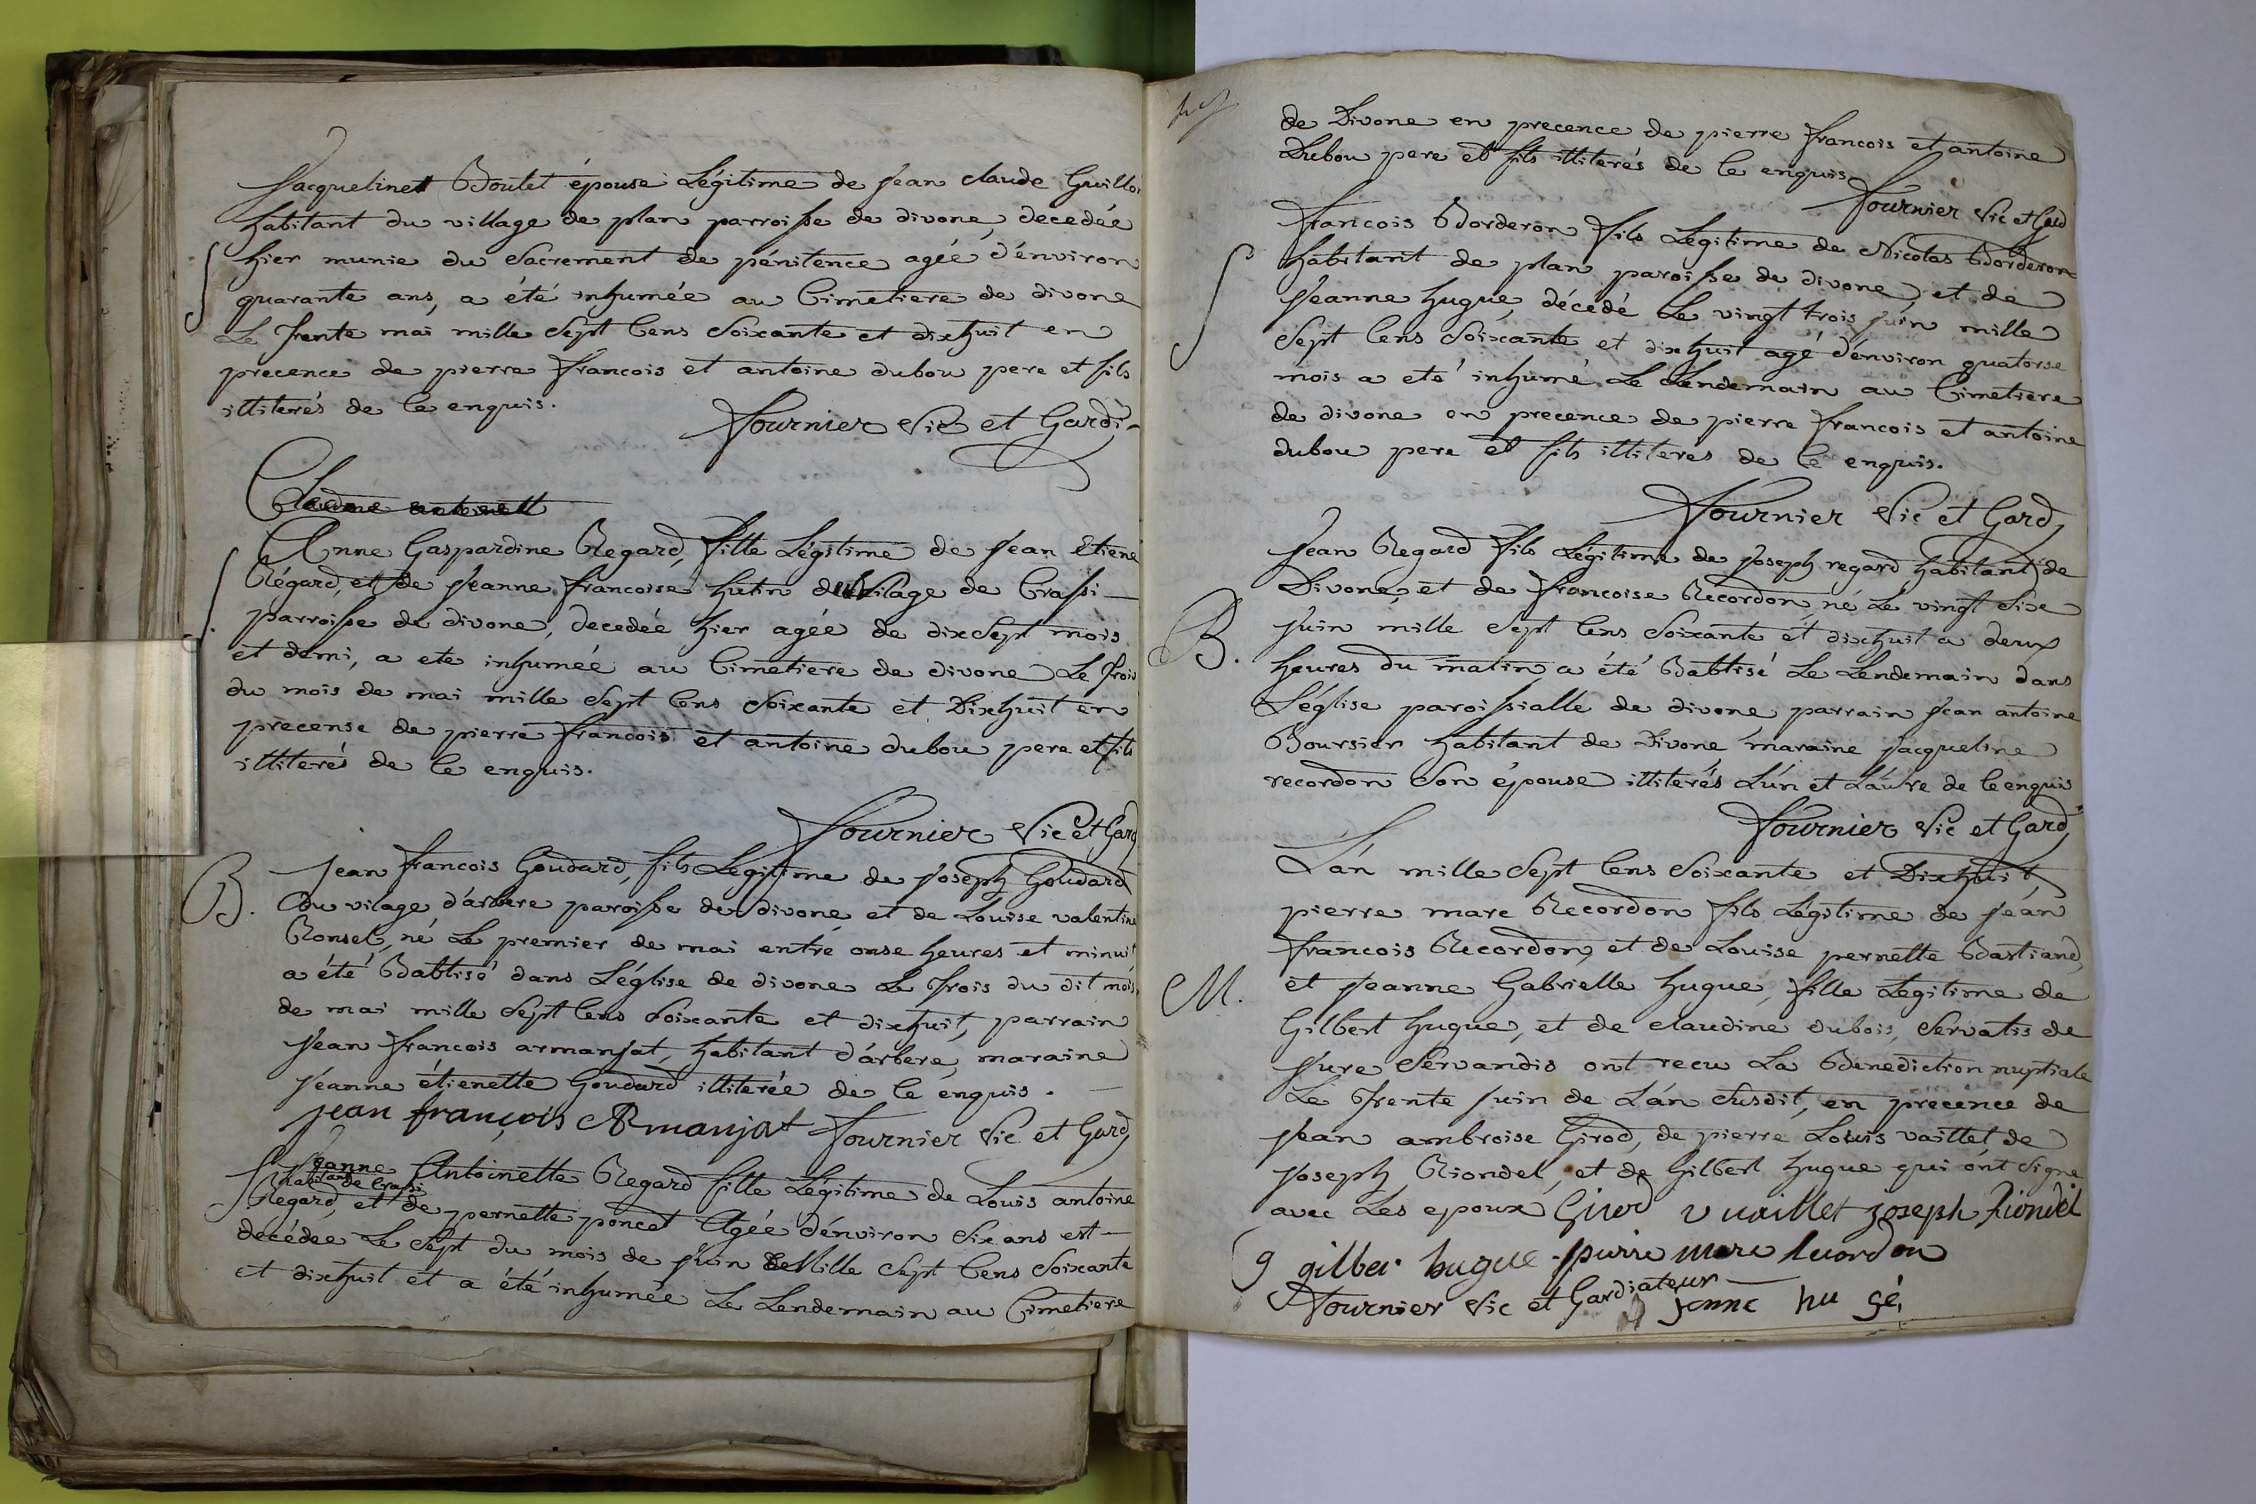 Jacquelinett Boulet épouse Légitime de Jean claude Guillo
habitant du village de plan parroisse de divone, decedée
S hier munie du Sacrement de pénitence agéé d'énviron
quarante ans, a été inhumée au Cimetiere de divone
Le trente mai mille Sept Cens Soixante et dixhuit en
precence de pierre francois et antoine dubou pere et fils
illiterés de Ce enquis.
Fournier Vic et Gardi
Claudine antoinett
S. Anne Gaspardine Regard, fille Légitime de Jean Etiene
Régard, et de Jeanne francoise hutin du vilage de Crassi
parroisse de divone, decedéé hier agée de dixSept mois
et demi, a ete inhuméé au Cimetiere de divone Le trois
du mois de mai mille Sept Cens Soixante et Dixhuit en
precense de pierre francois et antoine dubou pere et fils
illiterés de Ce enquis.
Fournier Vic et Gard
Jean francois Goudard, fils Legitime de Joseph Goudard
B. du vilage d'árbere paroisse de divone et de Louise valentine
Ronset, né Le premier de mai entré onse heures et minuit
a été Babtisé dans L'église de divone Le trois du dit mois
de mai mille Sept Cens Soixante et dixhuit, parrain
Jean francois armanjat, habitant d'árbere, maraine
Jeanne étienette Goudard illiterée de Ce enquis.
jean françois ARmanjat Fournier Vic et Gard
S Jeanne Antoinette Regard fille Légitime de Louis antoine
habitant de Crassi
Regard, et de pernette poncet Agée d'énviron Six ans est
decédée Le Sept du mois de Juin de Mille Sept Cens Soixante
et dixhuit et a été inhumée Le Lendemain au Cimetiere
de Divone en precence de pierre francois et antoine
Dubou pere et fils illiterés de Ce enquis
Fournier Vic et Gard
francois Borderon fils Légitime de Nicolas Borderon
S habitant de plan paroisse de divone, et de
Jeanne hugue, décédé Le vingt trois Juin mille
Sept Cens Soixante et dixhuit agé d'énviron quatorse
mois a eté inhumé Le Lendemain au Cimetiere
de divone en precence de pierre francois et antoine
dubou pere et fils illiteres de Ce enquis.
Fournier Vic et Gard
Jean Regard fils Légitime de Joseph regard habitant de
Divone, et de francoise Recordon, né Le vingt Sixe
B. Juin mille Sept Cens Soixante et dixhuit a deux
heures du matin a été Babtisé Le Lendemain dans
L'église paroissialle de divone, parrain Jean antoine
Boursier habitant de Divone maraine Jacqueline
recordon Son épouse illiterés L'ún et L'áutre de Ce enquis
Fournier Vic et Gard
L'án mille Sept Cens Soixante et Dixhuit,
pierre marc Recordon fils Légitime de Jean
francois Recordon, et de Louise pernette Bastiand,
M. et Jeanne Gabrielle hugue, fille Légitime de
Gilbert hugue, et de claudine dubois, Servatis de
Jure Servandis ont recu La Benediction nuptiale
Le trente Juin de L'án Susdit, en precence de
Jean ambroise Girod, de pierre Louis vaillet de
Joseph Riondel, et de Gilbert hugue qui ónt Signé
avec Les epoux Girod vuaillet joseph Riondel
gilber hugue pierre marc Recordon
Fournier Vic et Gardiateur janne hu gé